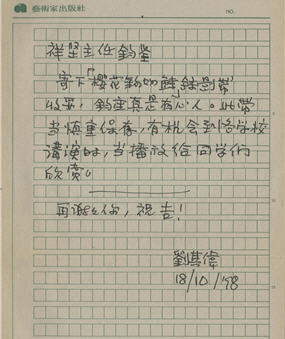 藝術家出版社
NO.
祥坚主任鈞鑒
寄下「櫻花鈎吻鮭」錄影帶
收軍,鈞座真是有心人。此帶
当慎重保存,有机会到各学校
講演時,当播放给同学们
欣賞。
再謝谢你,祝吉!
劉其偉
18/10/'98